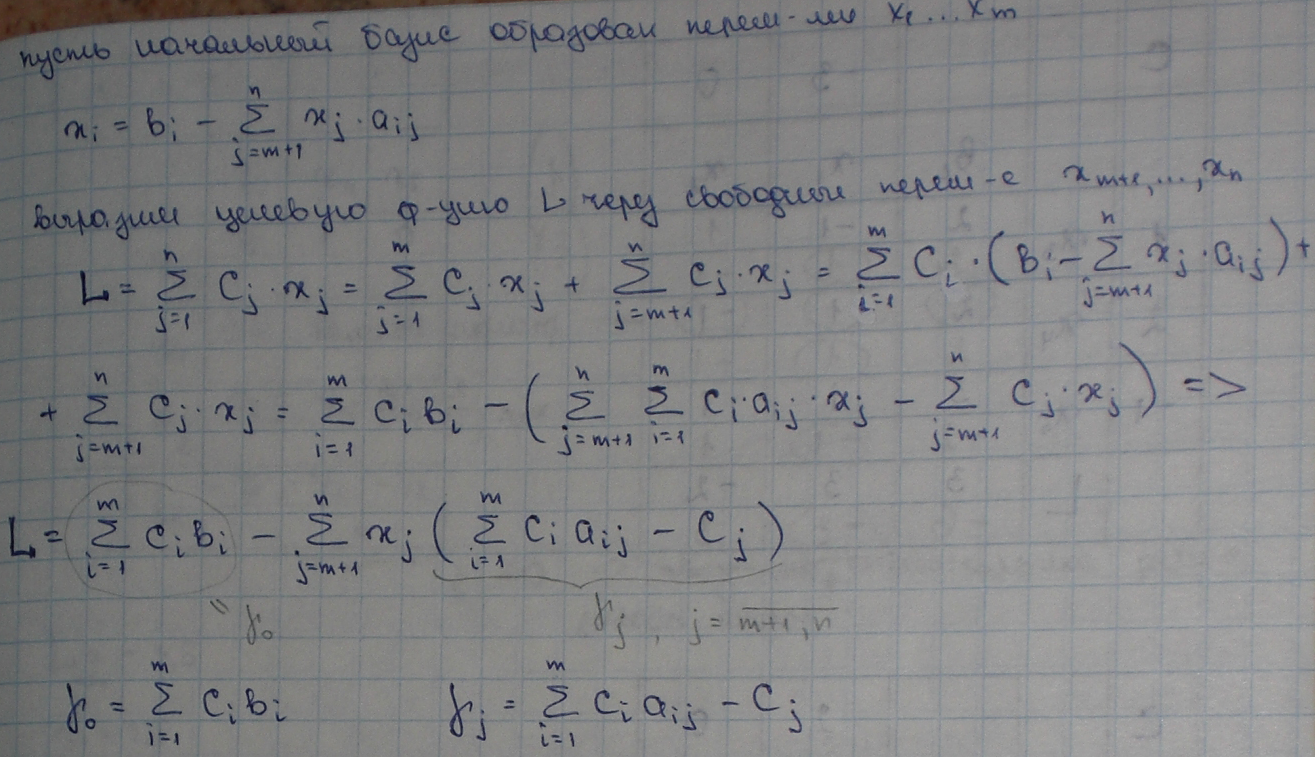 пусть начальный базис образован перем-ми x₁...xₘ
xᵢ = bᵢ - ∑_{j=m+1}^{n} xⱼ · aᵢⱼ
выразим целевую ф-цию L через свободные перем-е xₘ₊₁,...,xₙ
L = ∑_{j=1}^{n} Cⱼ · xⱼ = ∑_{j=1}^{m} Cⱼ · xⱼ + ∑_{j=m+1}^{n} Cⱼ · xⱼ = ∑_{i=1}^{m} Cᵢ · (bᵢ - ∑_{j=m+1}^{n} xⱼ · aᵢⱼ) +
+ ∑_{j=m+1}^{n} Cⱼ · xⱼ = ∑_{i=1}^{m} Cᵢ bᵢ - (∑_{j=m+1}^{n} ∑_{i=1}^{m} Cᵢ · aᵢⱼ · xⱼ - ∑_{j=m+1}^{n} Cⱼ · xⱼ) =>
L = ∑_{i=1}^{m} Cᵢ bᵢ - ∑_{j=m+1}^{n} xⱼ (∑_{i=1}^{m} Cᵢ aᵢⱼ - Cⱼ)
" γ₀ γⱼ, j = \overline{m+1, n}
γ₀ = ∑_{i=1}^{m} Cᵢ bᵢ γⱼ = ∑_{i=1}^{m} Cᵢ aᵢⱼ - Cⱼ